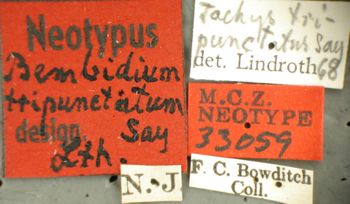 Neotypus
Bembidium
tripunctatum
design. Say
Lth.
Tachys tri-
punctatus Say
det. Lindroth 68
M.C.Z.
NEOTYPE
33059
N.J
F. C. Bowditch
Coll.